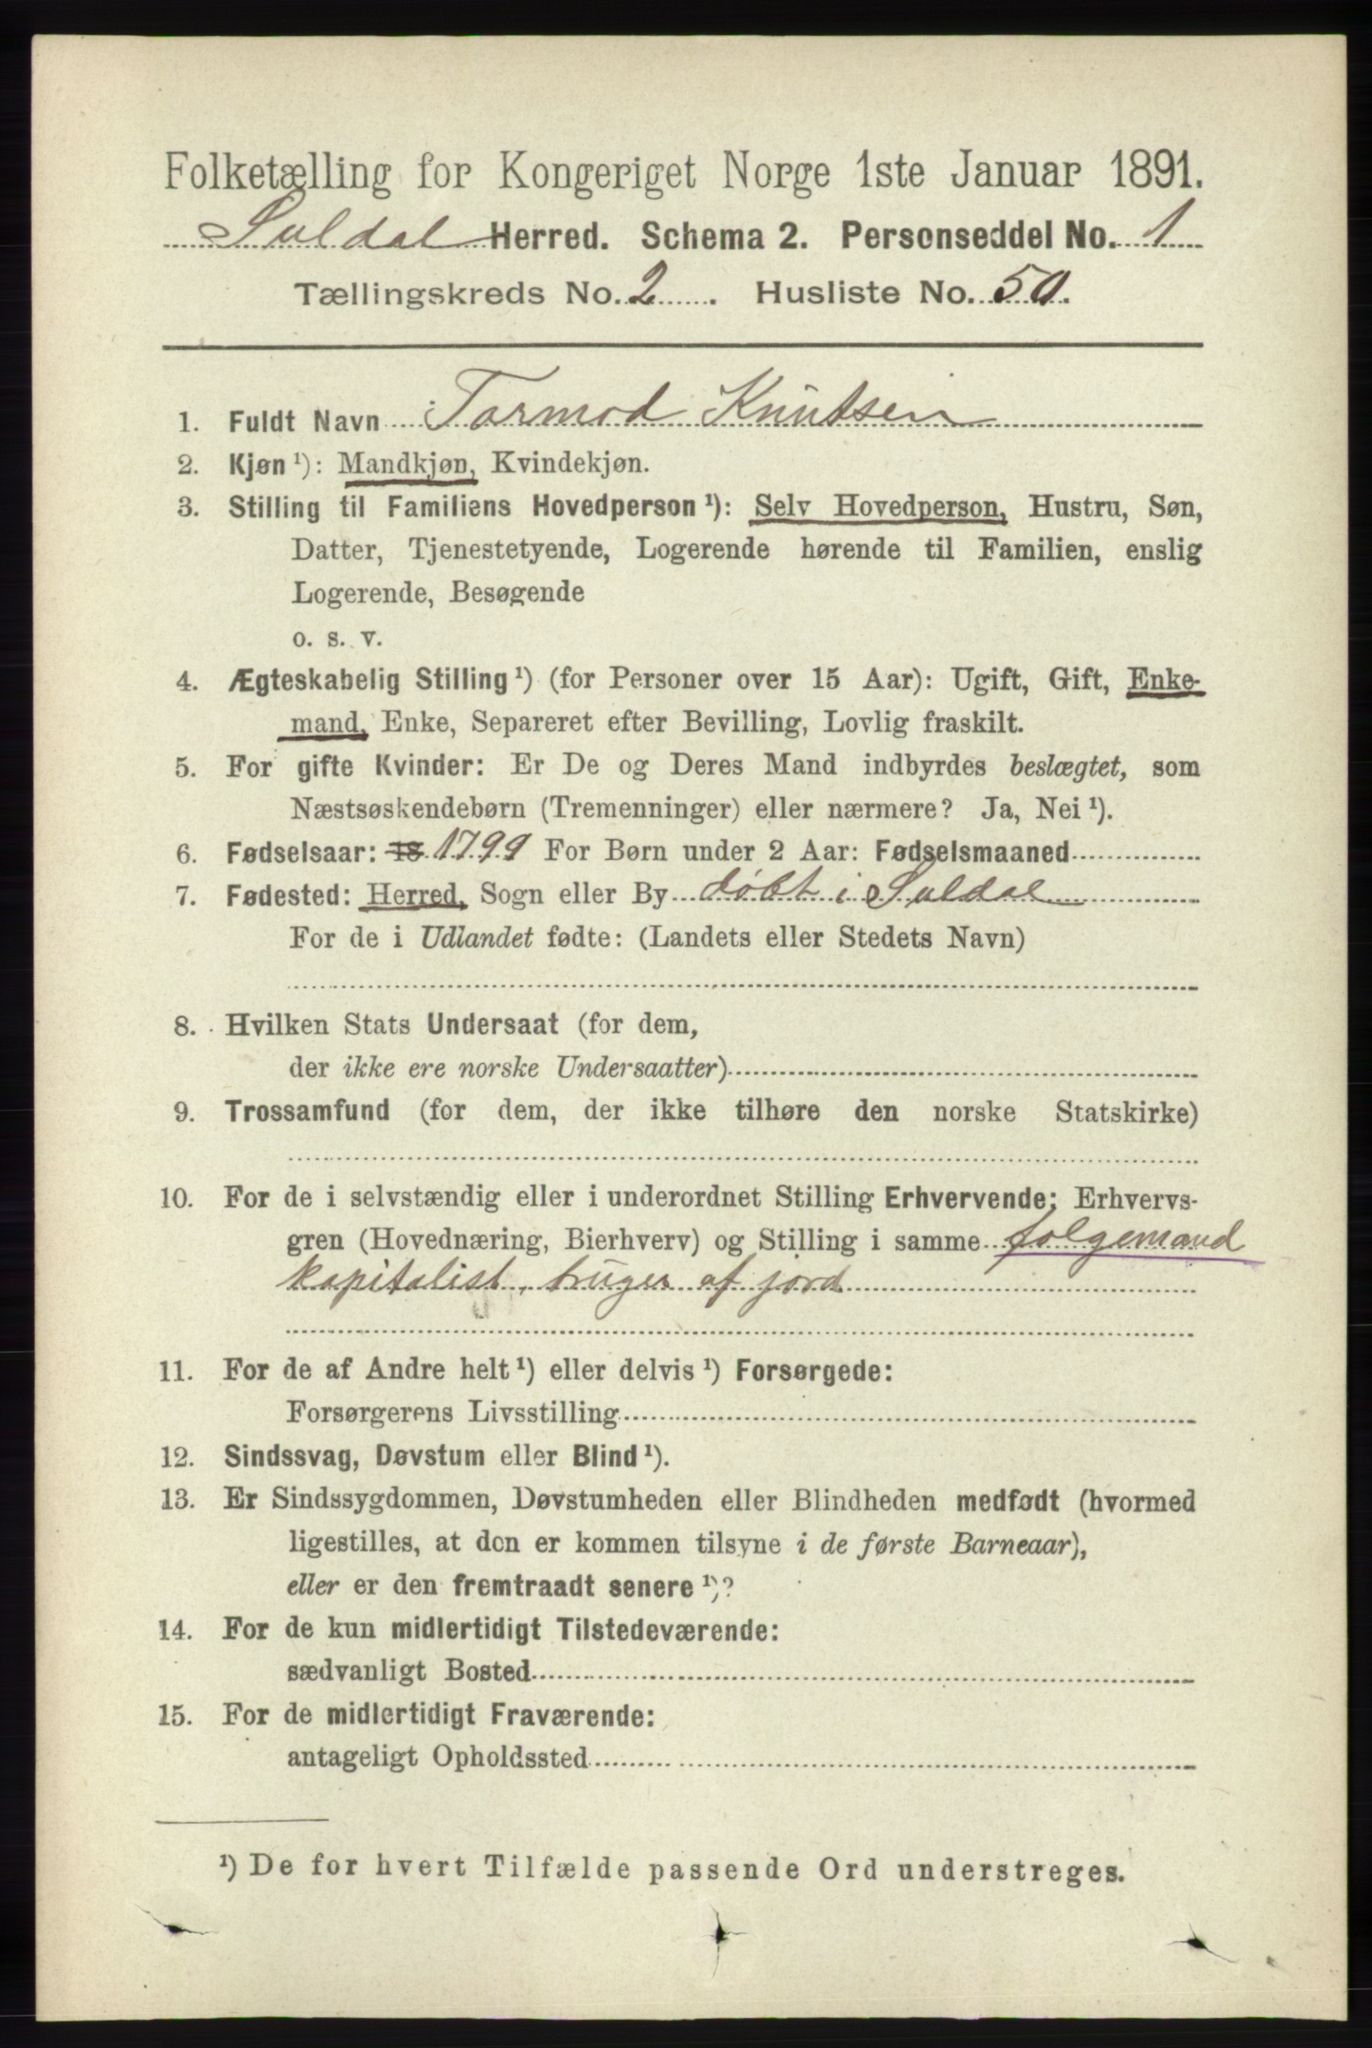 Folketælling for Kongeriget Norge 1ste Januar 1891.
Suldal Herred. Schema 2. Personseddel No. 1
Tællingskreds No. 2. Husliste No. 50.
1. Fuldt Navn Tormod Knutsen
2. Kjøn ¹): Mandkjøn, Kvindekjøn.
3. Stilling til Familiens Hovedperson ¹): Selv Hovedperson, Hustru, Søn,
Datter, Tjenestetyende, Logerende hørende til Familien, enslig
Logerende, Besøgende
o. s. v.
4. Ægteskabelig Stilling ¹) (for Personer over 15 Aar): Ugift, Gift, Enke-
mand, Enke, Separeret efter Bevilling, Lovlig fraskilt.
5. For gifte Kvinder: Er De og Deres Mand indbyrdes beslægtet, som
Næstsøskendebørn (Tremenninger) eller nærmere? Ja, Nei ¹).
6. Fødselsaar: 18 1799 For Børn under 2 Aar: Fødselsmaaned
7. Fødested: Herred, Sogn eller By døbt i Suldal
For de i Udlandet fødte: (Landets eller Stedets Navn)
8. Hvilken Stats Undersaat (for dem,
der ikke ere norske Undersaatter)
9. Trossamfund (for dem, der ikke tilhøre den norske Statskirke)
10. For de i selvstændig eller i underordnet Stilling Erhvervende: Erhvervs-
gren (Hovednæring, Bierhverv) og Stilling i samme folgemand
kapitalist, bruger af jord
11. For de af Andre helt ¹) eller delvis ¹) Forsørgede:
Forsørgerens Livsstilling
12. Sindssvag, Døvstum eller Blind ¹).
13. Er Sindssygdommen, Døvstumheden eller Blindheden medfødt (hvormed
ligestilles, at den er kommen tilsyne i de første Barneaar),
eller er den fremtraadt senere ¹)?
14. For de kun midlertidigt Tilstedeværende:
sædvanligt Bosted
15. For de midlertidigt Fraværende:
antageligt Opholdssted
¹) De for hvert Tilfælde passende Ord understreges.